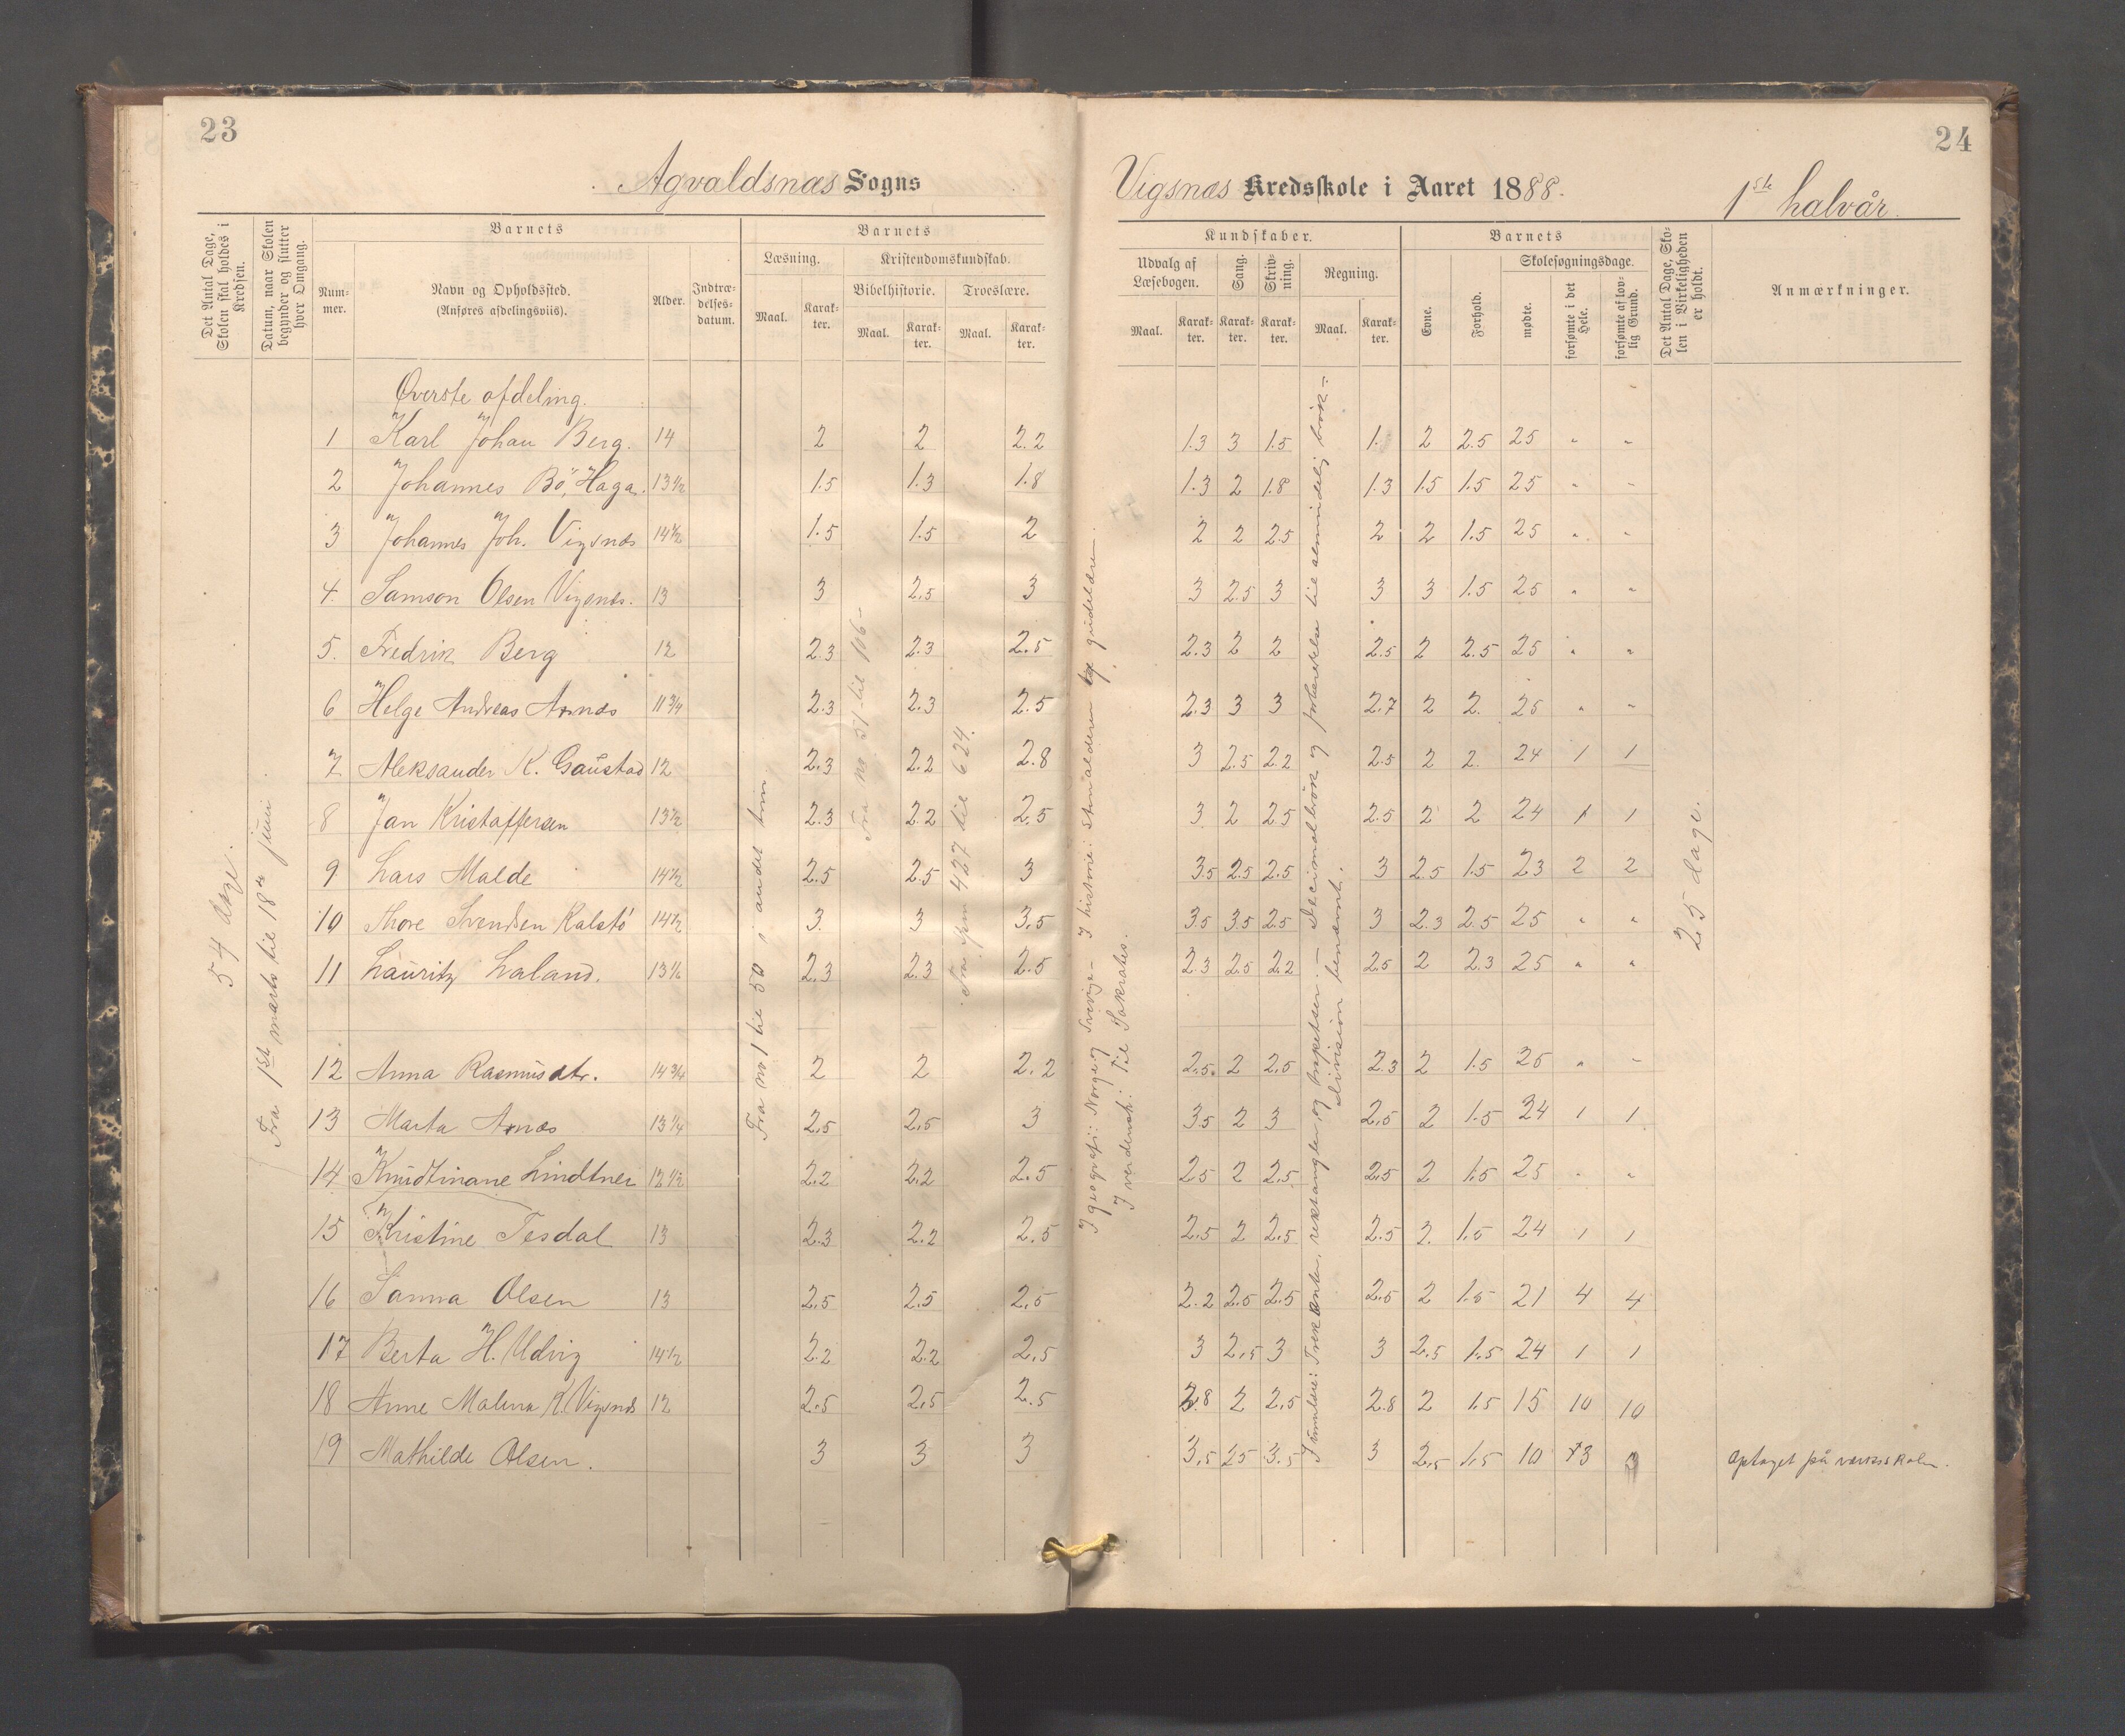 23
Agvaldsnæs Sogns
Det Antal Dage, Skolen skal holdes i Kredsen.
Datum, naar Skolen begynder og slutter hver Omgang.
Barnets
Num-mer.
Navn og Opholdssted.
(Anføres afdelingsviis).
Alder.
Indtræ-delses-datum.
Barnets
Læsning.
Maal.
Karak-ter.
Kristendomskundskab.
Bibelhistorie.
Maal.
Karak-ter.
Troeslære.
Maal.
Karak-ter.
24
Vigsnæs Kredsskole i Aaret 1888.
1ste halvår.
Kundskaber.
Udvalg af Læsebogen.
Maal.
Karak-ter.
Sang.
Karak-ter.
Skriv-ning.
Karak-ter.
Regning.
Maal.
Karak-ter.
Barnets
Evne.
Forhold.
Skolesøgningsdage.
mødte.
forsømte i det Hele.
forsømte af lov-lig Grund.
Det Antal Dage, Sko-len i Virkeligheden er holdt.
Anmærkninger.
54 dage.
Fra 1ste marts til 18de juni
Fra no 1 til 50 i andet trin
Fra no. 51 til 106 -
Fra spm 427 til 624.
I geografi: Norge og Sverige - I historie: stenalderen
I verdensh: Til Sokrates.
og prospekter. - Decimalbrök og forberedelse til almindelig brök -
division benævnt.
25 dage.
Øverste afdeling.
1 Karl Johan Berg. 14 2 2 2.2 1.3 3 1.5 1. 2 2.5 25 " "
2 Johannes Bö, Haga. 13 1/2 1.5 1.3 1.8 1.3 2 1.8 1.3 1.5 1.5 25 " "
3 Johannes Joh. Vigsnæs 14 1/2 1.5 1.5 2 2 2 2.5 2 2 1.5 25 " "
4. Samson Olsen Vigsnæs. 13 3 2.5 3 3 2.5 3 3 3 1.5 25 " "
5. Fredrik Berg 12 2.3 2.3 2.5 2.3 2 2 2.5 2 2.5 25 " "
6 Helge Andreas Arnæs 11 3/4 2.3 2.3 2.5 2.3 3 3 2.7 2 2. 25 " "
7 Aleksander K. Gaustad 12 2.3 2.2 2.8 3 2.5 2.2 2.5 2 2. 24 1 1
8 Jan Kristoffersen 13 1/2 2.3 2.2 2.5 3 2 2.5 2.5 2 2 24 1 1
9 Lars Malde 14 1/2 2.5 2.5 3 3.5 2.5 2.5 3 2.5 1.5 23 2 2
10 Thore Svendsen Kalstö 14 1/2 3. 3 3.5 3.5 3.5 2.5 3 2.3 2.5 25 " "
11 Lauritz Laland. 2.3 2.3 2.5 2.3 2.5 2.2 2.5 2 2.3 25 " "
12 Anna Rasmusdtr. 14 3/4 2 2 2.2 2.5 2 2.5 2.3 2 1.5 25 " "
13 Marta Arnæs 13 1/4 2.5 2.5 3 3.5 2 3 2.5 2 1.5 24 1 1
14 Knudtinane Lindtner 12 1/2 2.2 2.2 2.5 2.5 2 2.5 2.5 2 1.5 25 " "
15 Kristine Tesdal 13 2.3 2.2 2.5 2.5 2 2.5 2.5 2. 1.5 24 1 1
16 Sanna Olsen 13 2.5 2.5 2.5 2.2 2.5 2.5 2.5 2 1.5 21 4 4
17 Berta H. Udvig 14 1/2 2.2 2.2 2.5 3 2.5 3 3 2.5 1.5 24 1 1
18 Anne Malena K. Vigsnæs 12 2.5 2.5 2.5 2.8 2 2.5 2.8 2 1.5 15 10 10
19 Mathilde Olsen. 3 3 3 3.5 2.5 3.5 3 2.5 1.5 10 3 optaget på værksskolen.